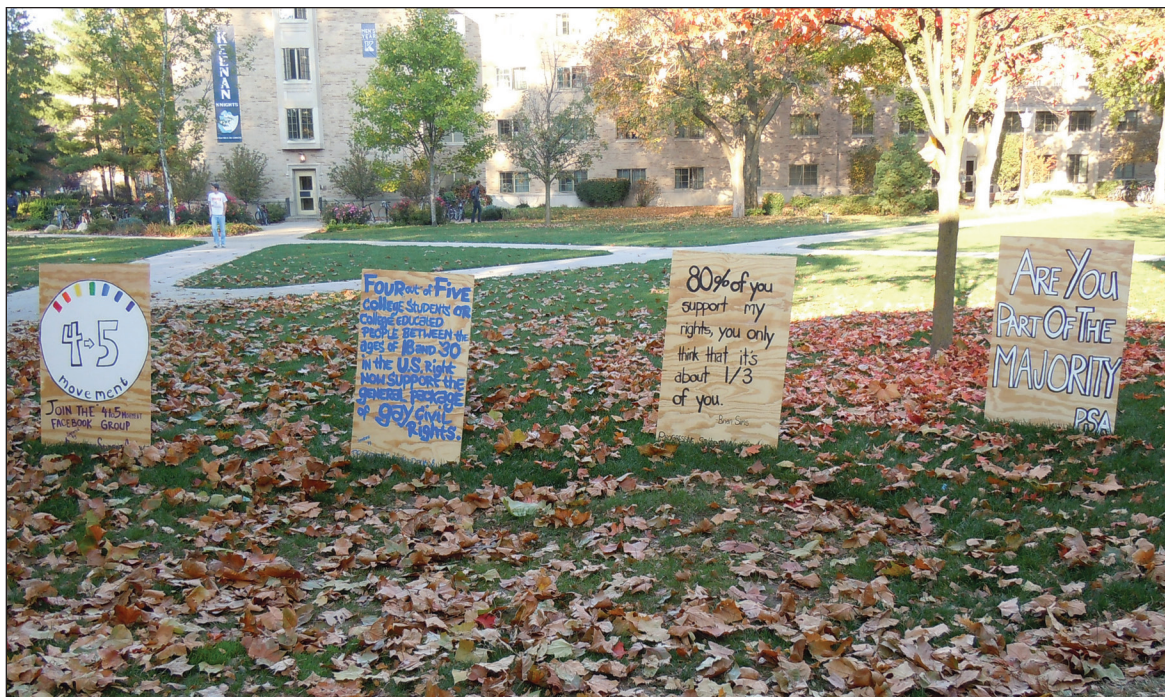 KEENAN
KNIGHTS
4→5
movement
JOIN THE 4to5 Movement
FACEBOOK GROUP
FOUR out of FIVE
COLLEGE STUDENTS OR
College EDUCATED
PEOPLE BETWEEN the
ages of 18 AND 30
IN the U.S. Right
NOW SUPPORT THE
general package
of gay civil
RIGHTS.
80% of you
support my
rights, you only
think that it's
about 1/3
of you.
ARE YOU
PART OF THE
MAJORITY
PSA